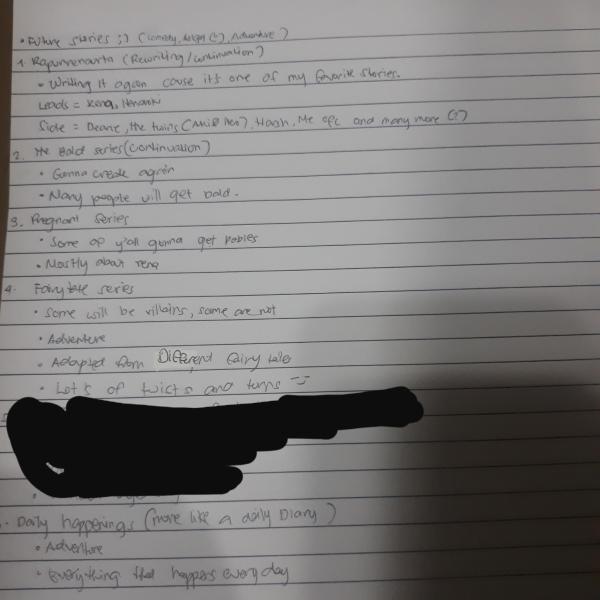 • Future stories ;) (comedy, (?), Adventure)
1. Rapunnenauta (Rewriting/continuation)
• Writing it again cause it's one of my favorite stories.
Leads =
Side = Deane, the twins (and), Haah, Me ofc and many more (?)
2. The Bald series (continuation)
• Gonna create again
• Many people will get bald.
3. Pregnant series
• Some of y'all gonna get babies
• Mostly about rena
4. Fairytale series
• Some will be villains, some are not
• Adventure
• Adapted from Different fairy tales
• Lots of twists and turns
• Daily happenings (more like a daily Diary)
• Adventure
• Everything that happens everyday